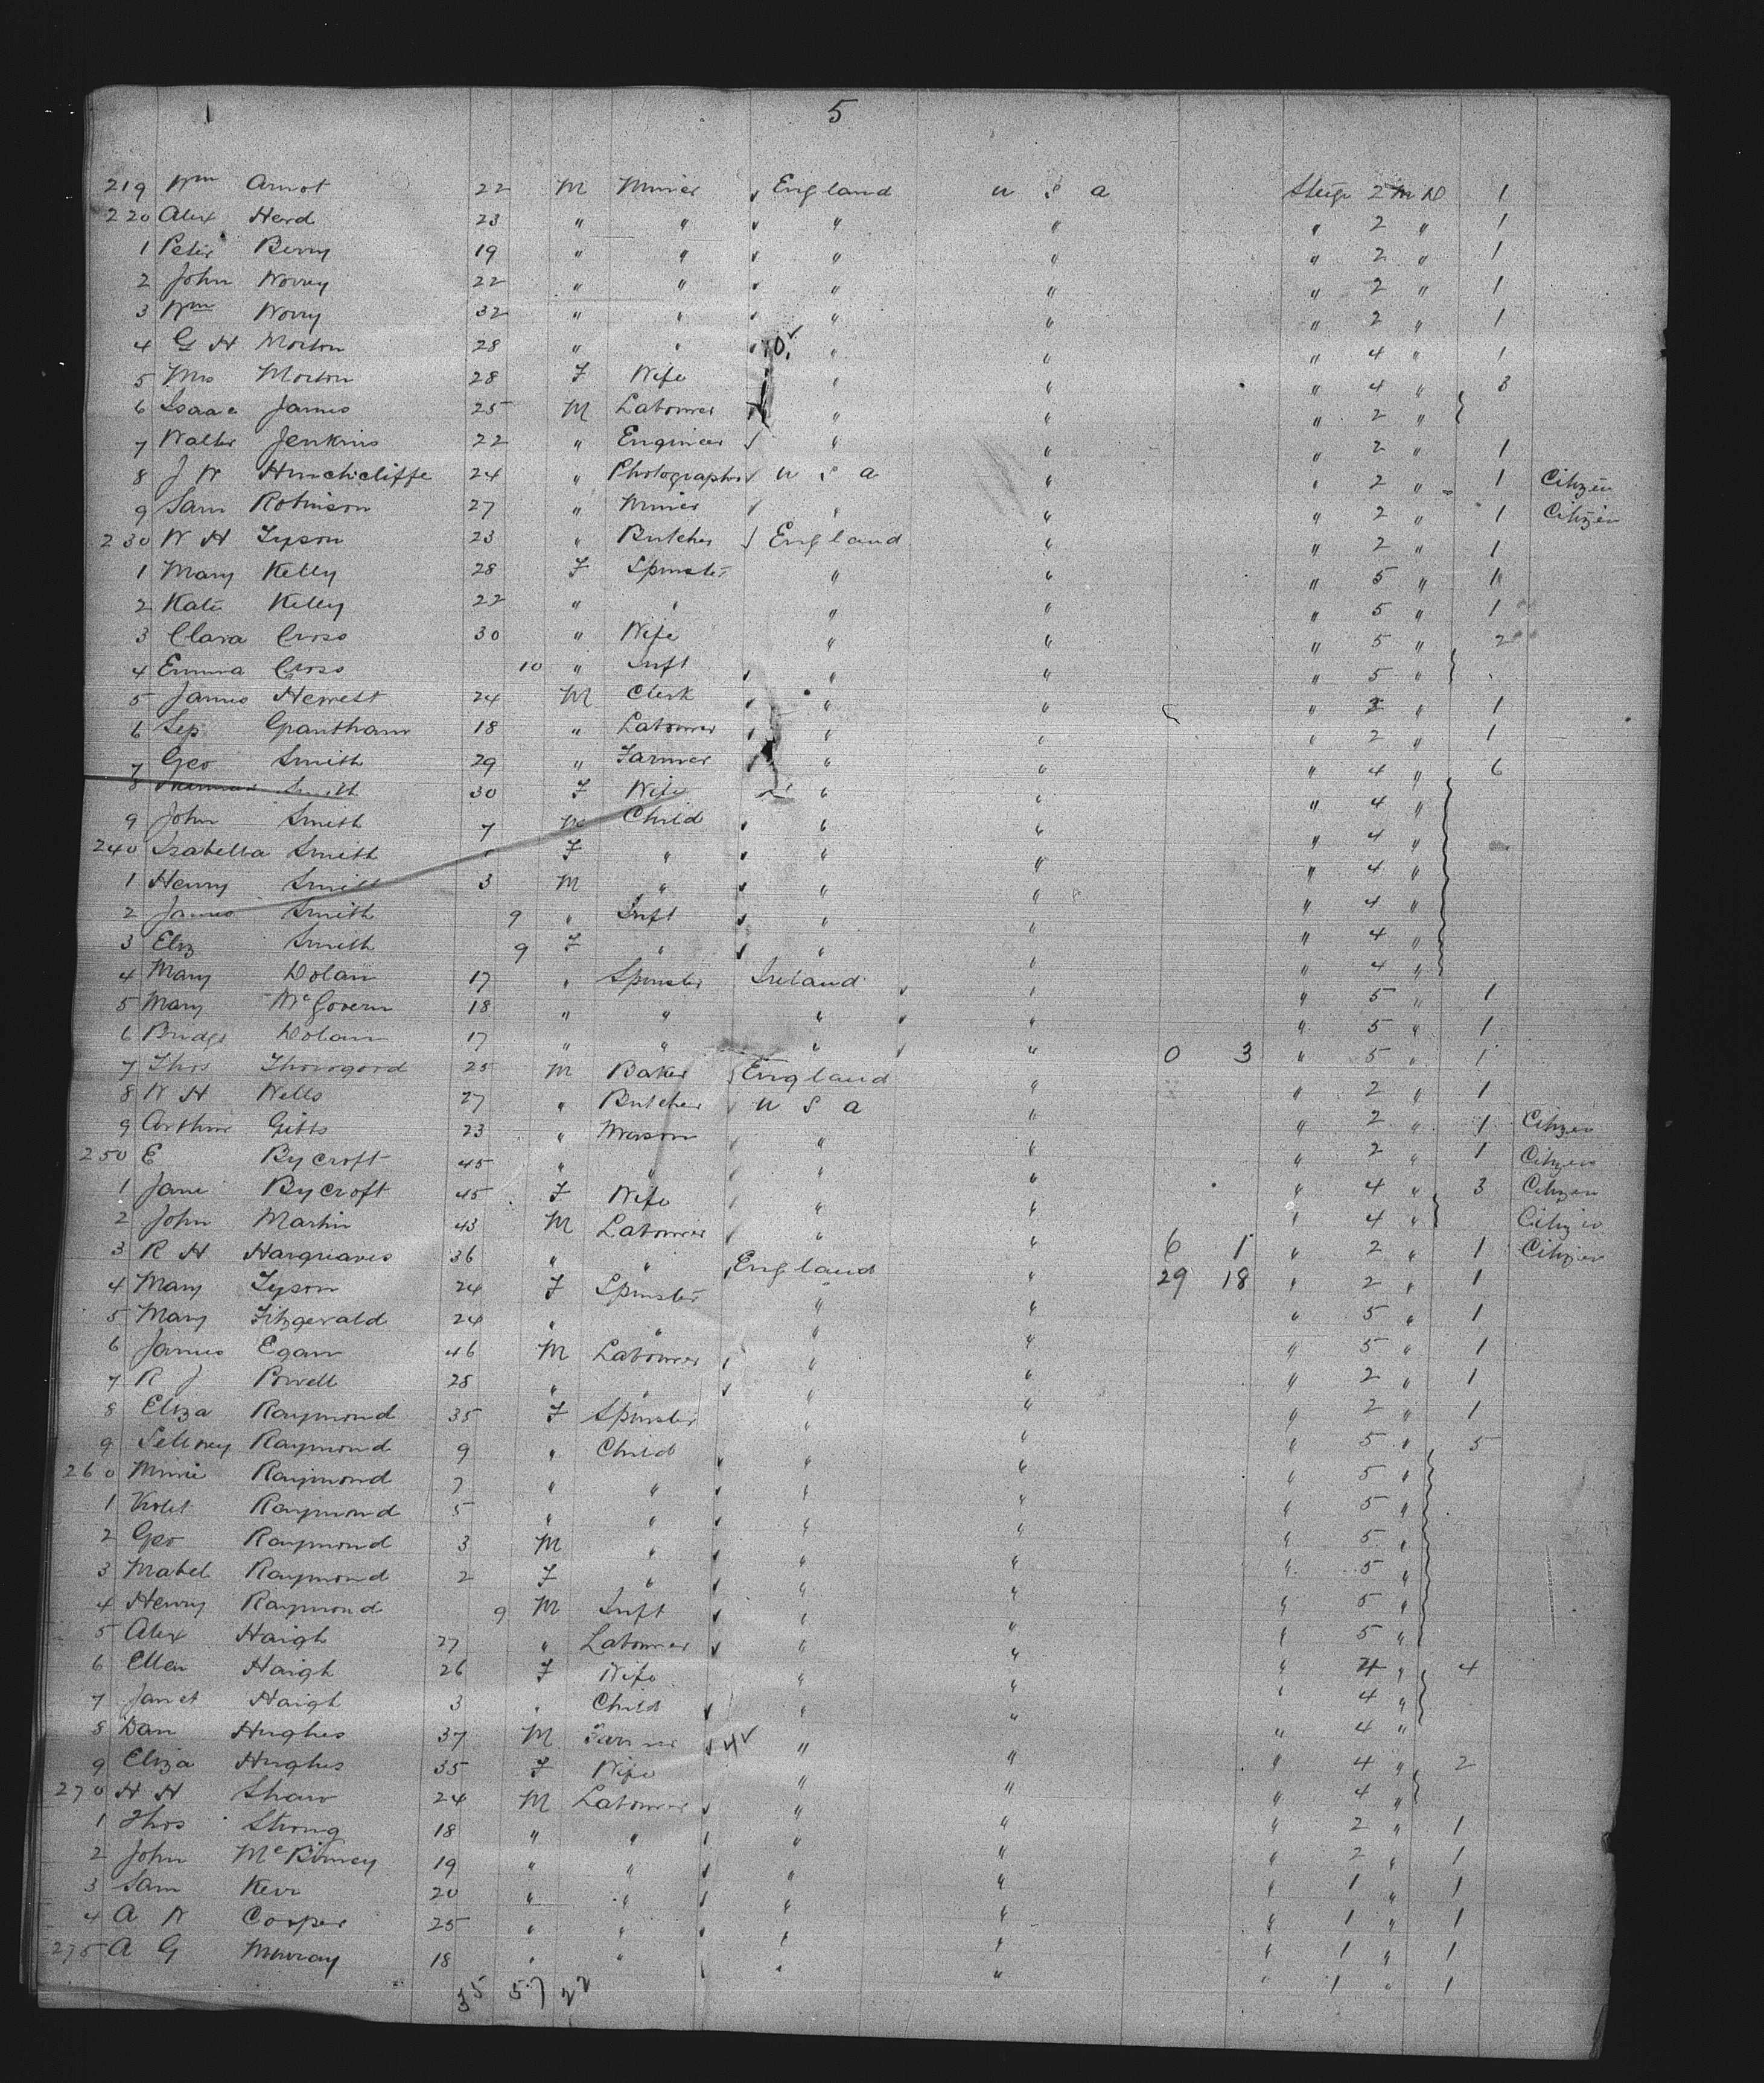 5
219 Wm Arnot 22 M Miner England U S A Steige 2 M D 1
220 Alex Herd 23 " " " " " 2 " 1
1 Peter Berry 19 " " " " " 2 " 1
2 John Worry 22 " " " " " 2 " 1
3 Wm Worry 32 " " " " " 2 " 1
4 G H Morton 28 " " " " " 4 " 1
5 Mrs Morton 28 F Wife " " " 4 " 3
6 Isaac James 25 M Labourer " " " 2 "
7 Walter Jenkins 22 " Engineer " " " 2 " 1
8 J W Hinchcliffe 24 " Photographer U S A " " 2 " 1 Citizen
9 Sam Robinson 27 " Miner " " " 2 " 1 Citizen
230 W H Tyson 23 " Butcher England " " 2 " 1
1 Mary Kelly 28 F Spinster " " " 5 " 1
2 Kate Kelly 22 " " " " " 5 " 1
3 Clara Cross 30 " Wife " " " 5 " 2
4 Emma Cross 10 " Inft " " " 5 "
5 James Hewett 24 M Clerk " " " 2 " 1
6 Sep Grantham 18 " Labourer " " " 2 " 1
7 Geo Smith 29 " Farmer " " " 4 " 6
8 Smith 30 F Wife " " " 4 "
9 John Smith 7 M Child " " " 4 "
240 Isabella Smith F " " " " 4 "
1 Henry Smith 3 M " " " " 4 "
2 James Smith 9 " Inft " " " 4 "
3 Eliz Smith 9 F " " " " 4 "
4 Mary Dolan 17 " Spinster Ireland " " 5 " 1
5 Mary McGovern 18 " " " " " 5 " 1
6 Bridgt Dolan 17 " " " " 0 3 " 5 " 1
7 Thos Thorogood 25 M Baker England " " 2 " 1
8 W H Wells 27 " Butcher U S A " " 2 " 1 Citizen
9 Arthur Gibbs 23 " Mason " " " 2 " 1 Citizen
250 E Bycroft 45 " " " " " 4 " 3 Citizen
1 Jane Bycroft 45 F Wife " " " 4 " Citizen
2 John Martin 43 M Labourer " " 6 1 " 2 " 1 Citizen
3 R H Hargreaves 36 " " England " 29 18 " 2 " 1
4 Mary Tyson 24 F Spinster " " " 5 " 1
5 Mary Fitzgerald 24 " " " " " 5 " 1
6 James Egan 46 M Labourer " " " 2 " 1
7 R J Powell 28 " " " " " 2 " 1
8 Eliza Raymond 35 F Spinster " " " 5 " 5
9 Raymond 9 " Child " " " 5 "
260 Minie Raymond 7 " " " " " 5 "
1 Violet Raymond 5 " " " " " 5 "
2 Geo Raymond 3 M " " " " 5 "
3 Mabel Raymond 2 F " " " " 5 "
4 Henry Raymond 9 M Inft " " " 5 "
5 Alex Haigh 27 " Labourer " " " 4 " 4
6 Ellen Haigh 26 F Wife " " " 4 "
7 Janet Haigh 3 " Child " " " 4 "
8 Dan Hughes 37 M Farmer " " " 4 " 2
9 Eliza Hughes 35 F Wife " " " 4 "
270 H H Shaw 24 M Labourer " " " 2 " 1
1 Thos Strong 18 " " " " " 2 " 1
2 John McBirney 19 " " " " " 1 " 1
3 Sam Kerr 20 " " " " " 1 " 1
4 A W Cooper 25 " " " " " 1 " 1
275 A G Murray 18 " " " " " 1 " 1
35 57 22